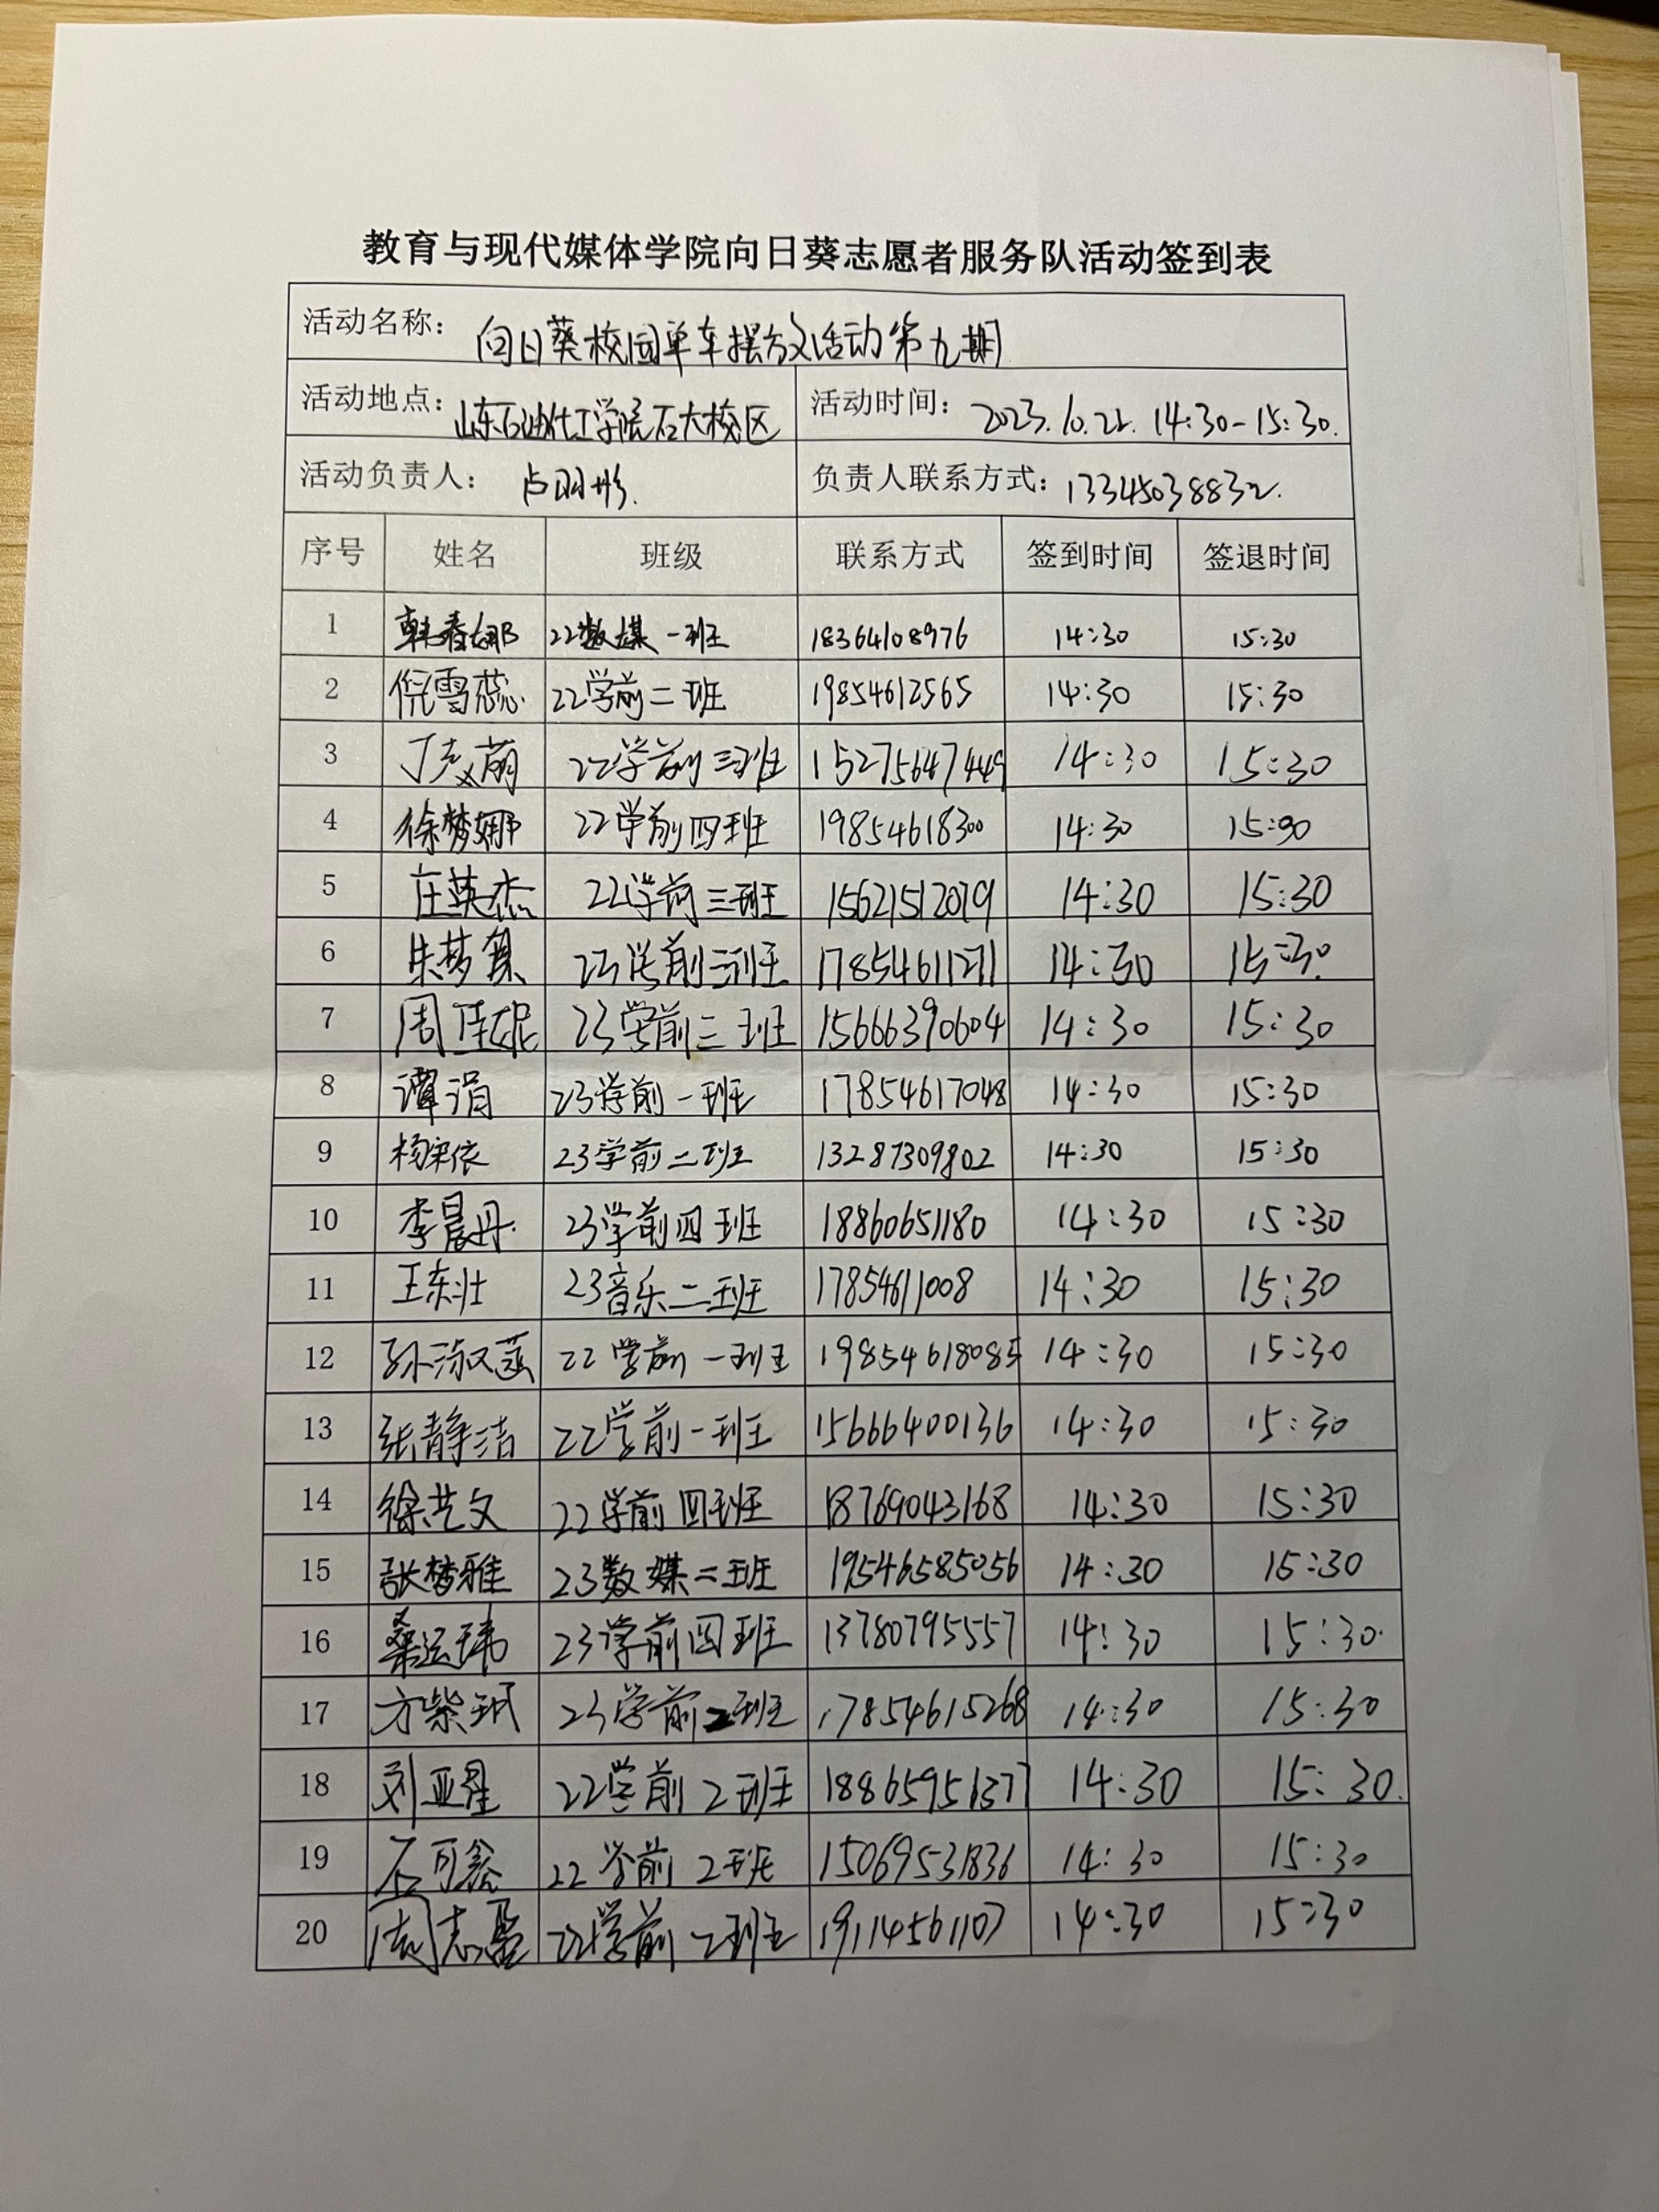 教育与现代媒体学院向日葵志愿者服务队活动签到表
活动名称： 向日葵校园单车摆放活动第九期
活动地点： 山东石油化工学院石大校区 活动时间： 2023.10.22. 14:30-15:30.
活动负责人： 卢羽彤. 负责人联系方式： 13345038832.
序号 姓名 班级 联系方式 签到时间 签退时间
1 韩春娜 22数媒一班 18364108976 14:30 15:30
2 倪雪蕊 22学前二班 19854612565 14:30 15:30
3 丁爻萌 22学前三班 15275647449 14:30 15:30
4 徐梦娜 22学前四班 19854618300 14:30 15:30
5 庄英杰 22学前三班 15621512079 14:30 15:30
6 朱梦 23学前三班 17854611271 14:30 15:30
7 周佳妮 23学前三班 15666390604 14:30 15:30
8 谭涓 23学前一班 17854617048 14:30 15:30
9 杨宋依 23学前二班 13287309802 14:30 15:30
10 李晨丹 23学前四班 18860651180 14:30 15:30
11 王东壮 23音乐二班 17854611008 14:30 15:30
12 孙淑菡 22学前一班 19854618085 14:30 15:30
13 张静洁 22学前一班 15666400136 14:30 15:30
14 徐艺文 22学前四班 18769043168 14:30 15:30
15 张梦雅 23数媒二班 19546585056 14:30 15:30
16 桑运玮 23学前四班 13780795557 14:30 15:30
17 方紫玳 23学前2班 17854615268 14:30 15:30
18 刘亚星 22学前2班 18865956377 14:30 15:30.
19 石可鑫 22学前2班 15069531836 14:30 15:30
20 周志盈 22学前二班 19114561107 14:30 15:30